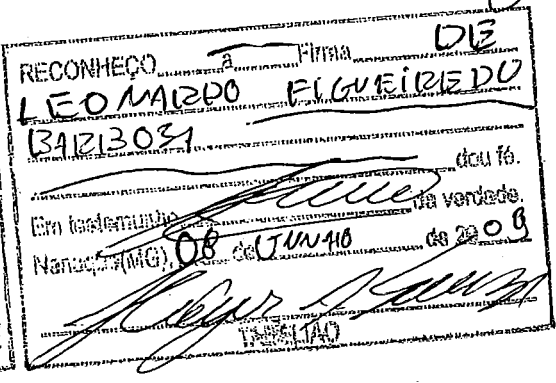 RECONHEÇO a Firma DE
LEONARDO FIGUEIREDO
BARBOSA
dou fé.
Em testemunho da verdade.
Nanuque(MG), 08 de JUNHO de 2009
TABELIÃO